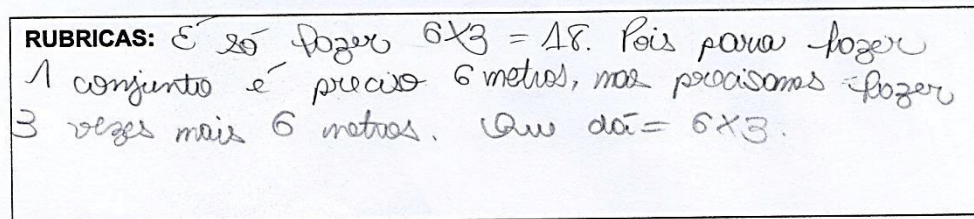 RUBRICAS: É só fazer 6x3 = 18. Pois para fazer
1 conjunto é preciso 6 metros, mas precisamos fazer
3 vezes mais 6 metros. Que dá = 6x3.